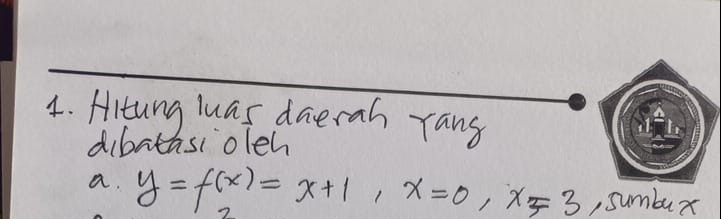 1. Hitung luas daerah yang
dibatasi oleh
a. y = f(x) = x+1 , x=0 , x=3 , sumbu x
2